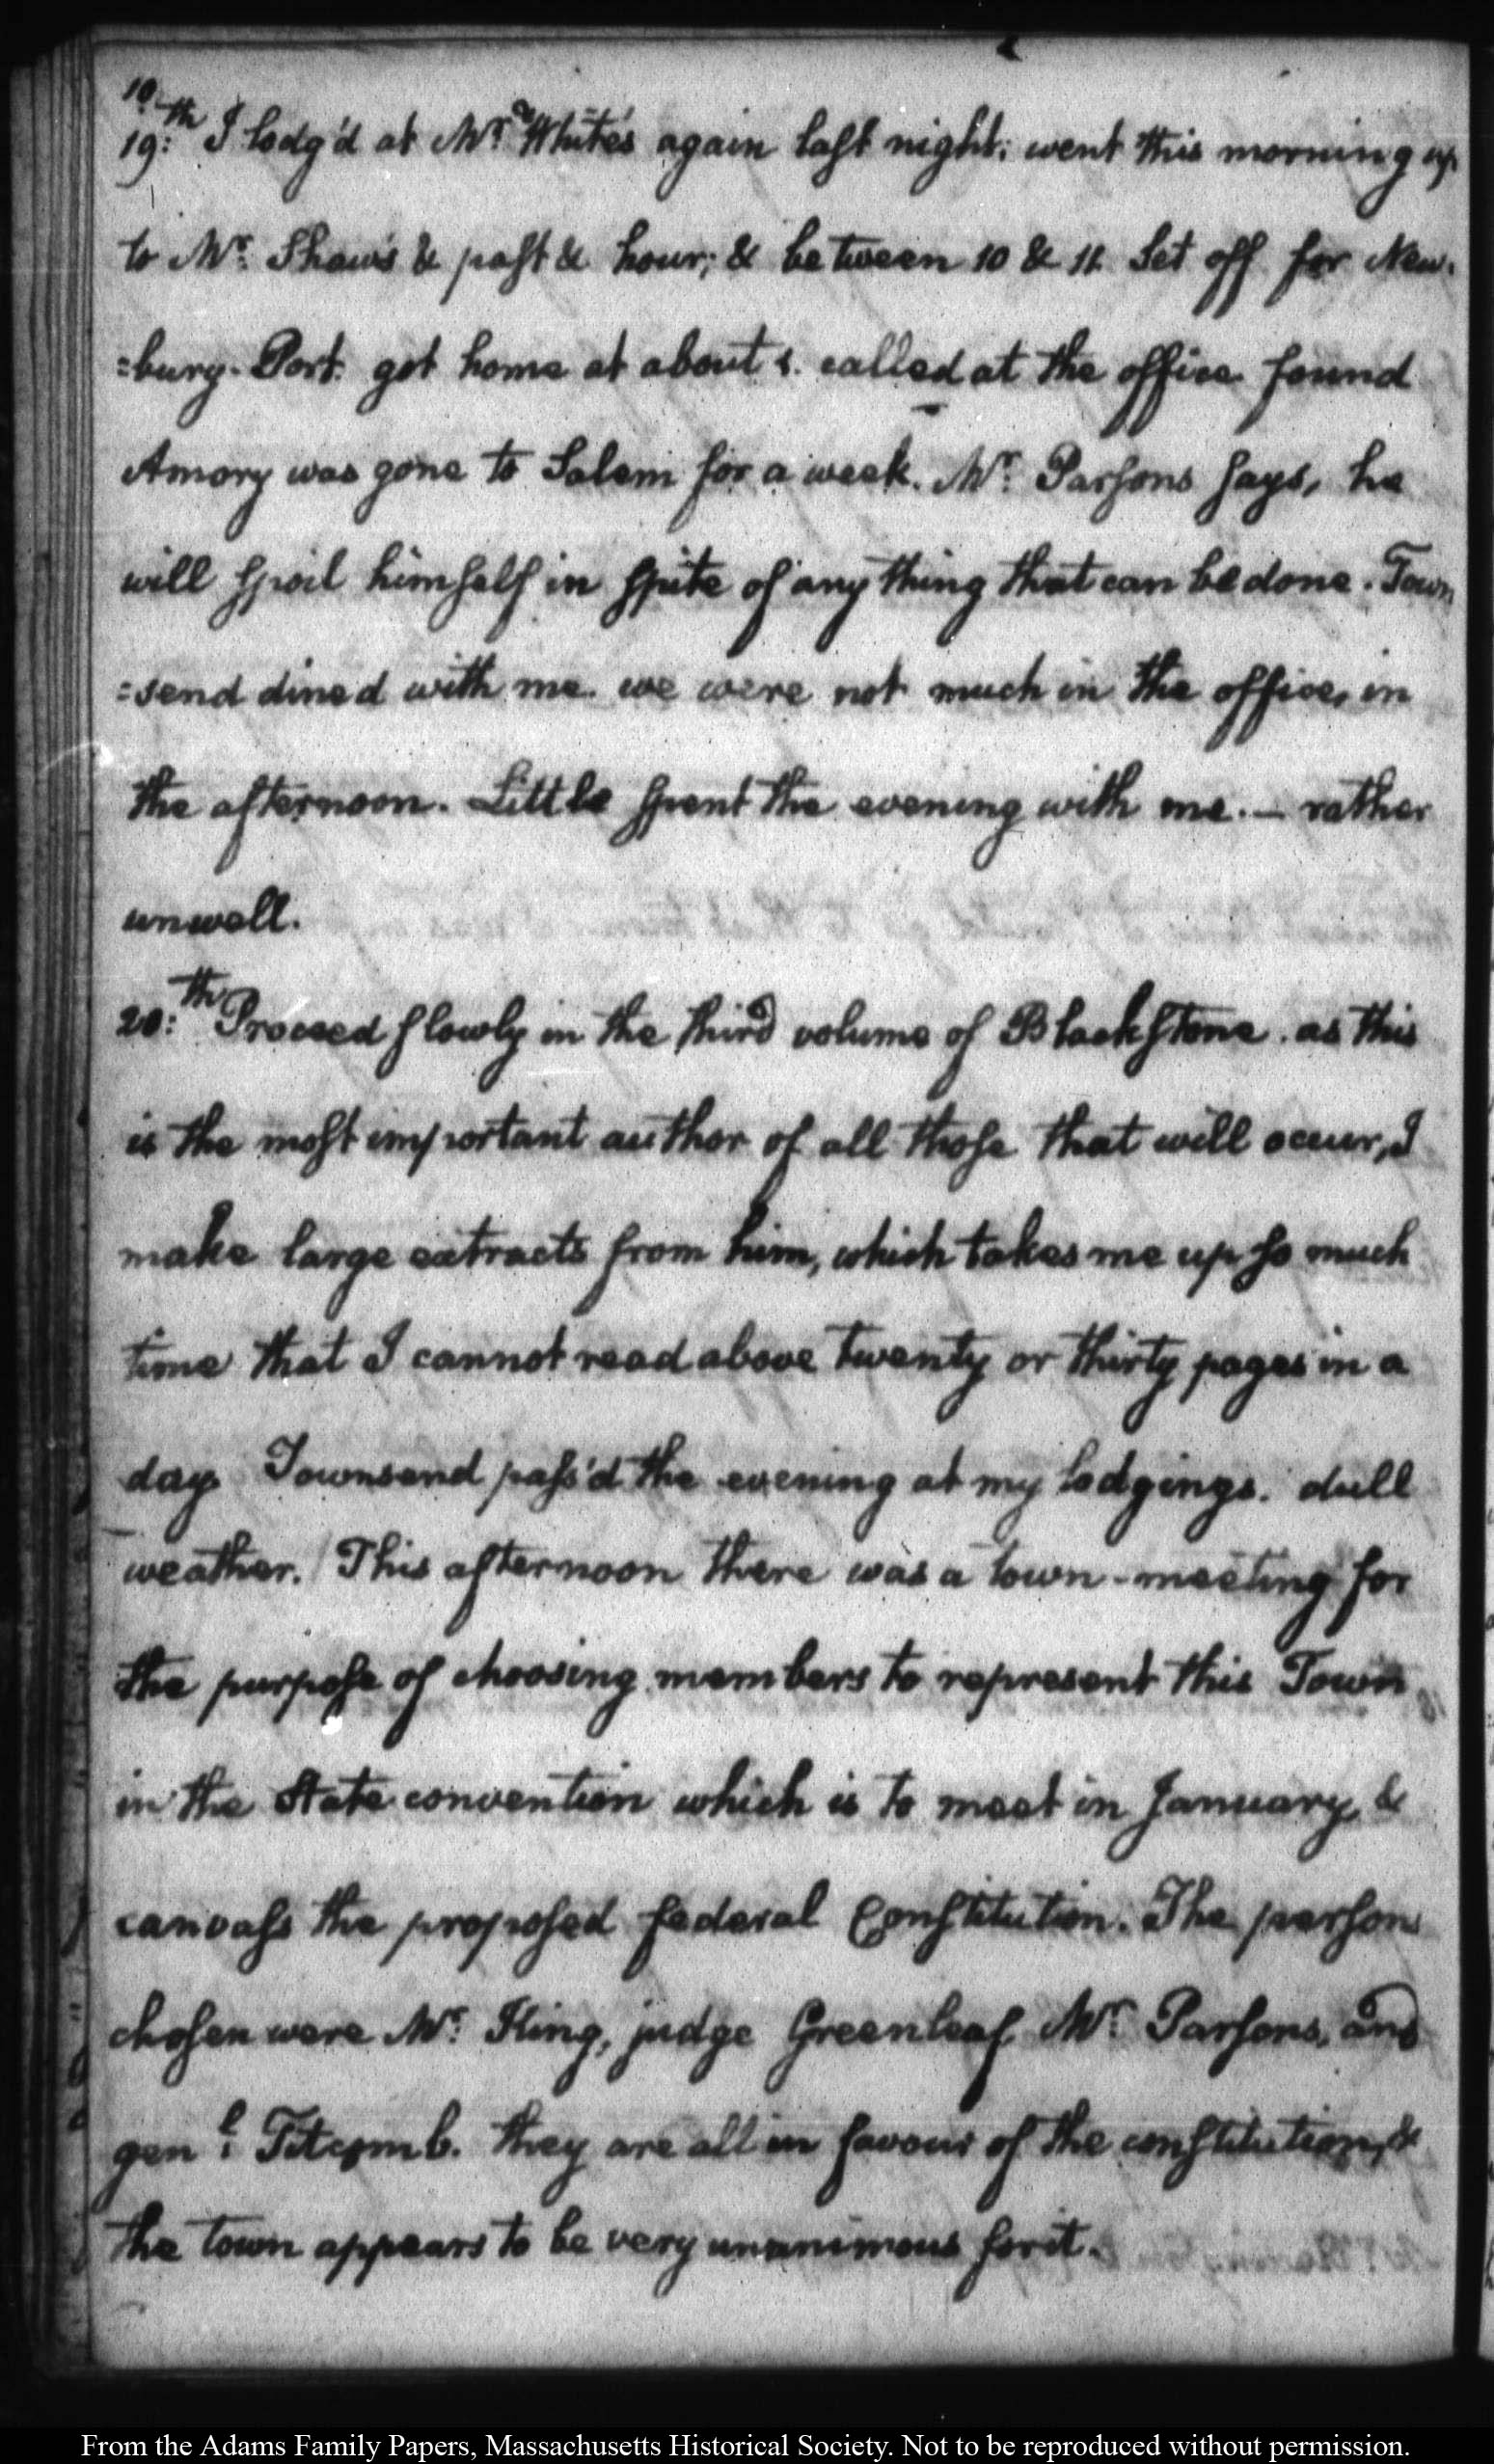 19:th I lodg'd at Mr. White's again last night; went this morning up
to Mr. Shaw's & past & hour; & between 10 & 11 set off for New-
=bury-Port. got home at about 1. called at the office found
Amory was gone to Salem for a week. Mr. Parsons says, he
will spoil himself in spite of any thing that can be done. Town
=send dined with me. we were not much in the office, in
the afternoon. Little spent the evening with me. — rather
unwell.
20:th Proceed slowly in the third volume of Blackstone. as this
is the most important author of all those that will occur, I
make large extracts from him, which takes me up so much
time that I cannot read above twenty or thirty pages in a
day. Townsend pass'd the evening at my lodgings. dull
weather. This afternoon there was a town-meeting for
the purpose of choosing members to represent this Town
in the State convention which is to meet in January, &
canvass the proposed federal Constitution. The persons
chosen were Mr. King, judge Greenleaf, Mr. Parsons, and
genl. Titcomb. they are all in favour of the constitution, &
the town appears to be very unanimous for it.
From the Adams Family Papers, Massachusetts Historical Society. Not to be reproduced without permission.